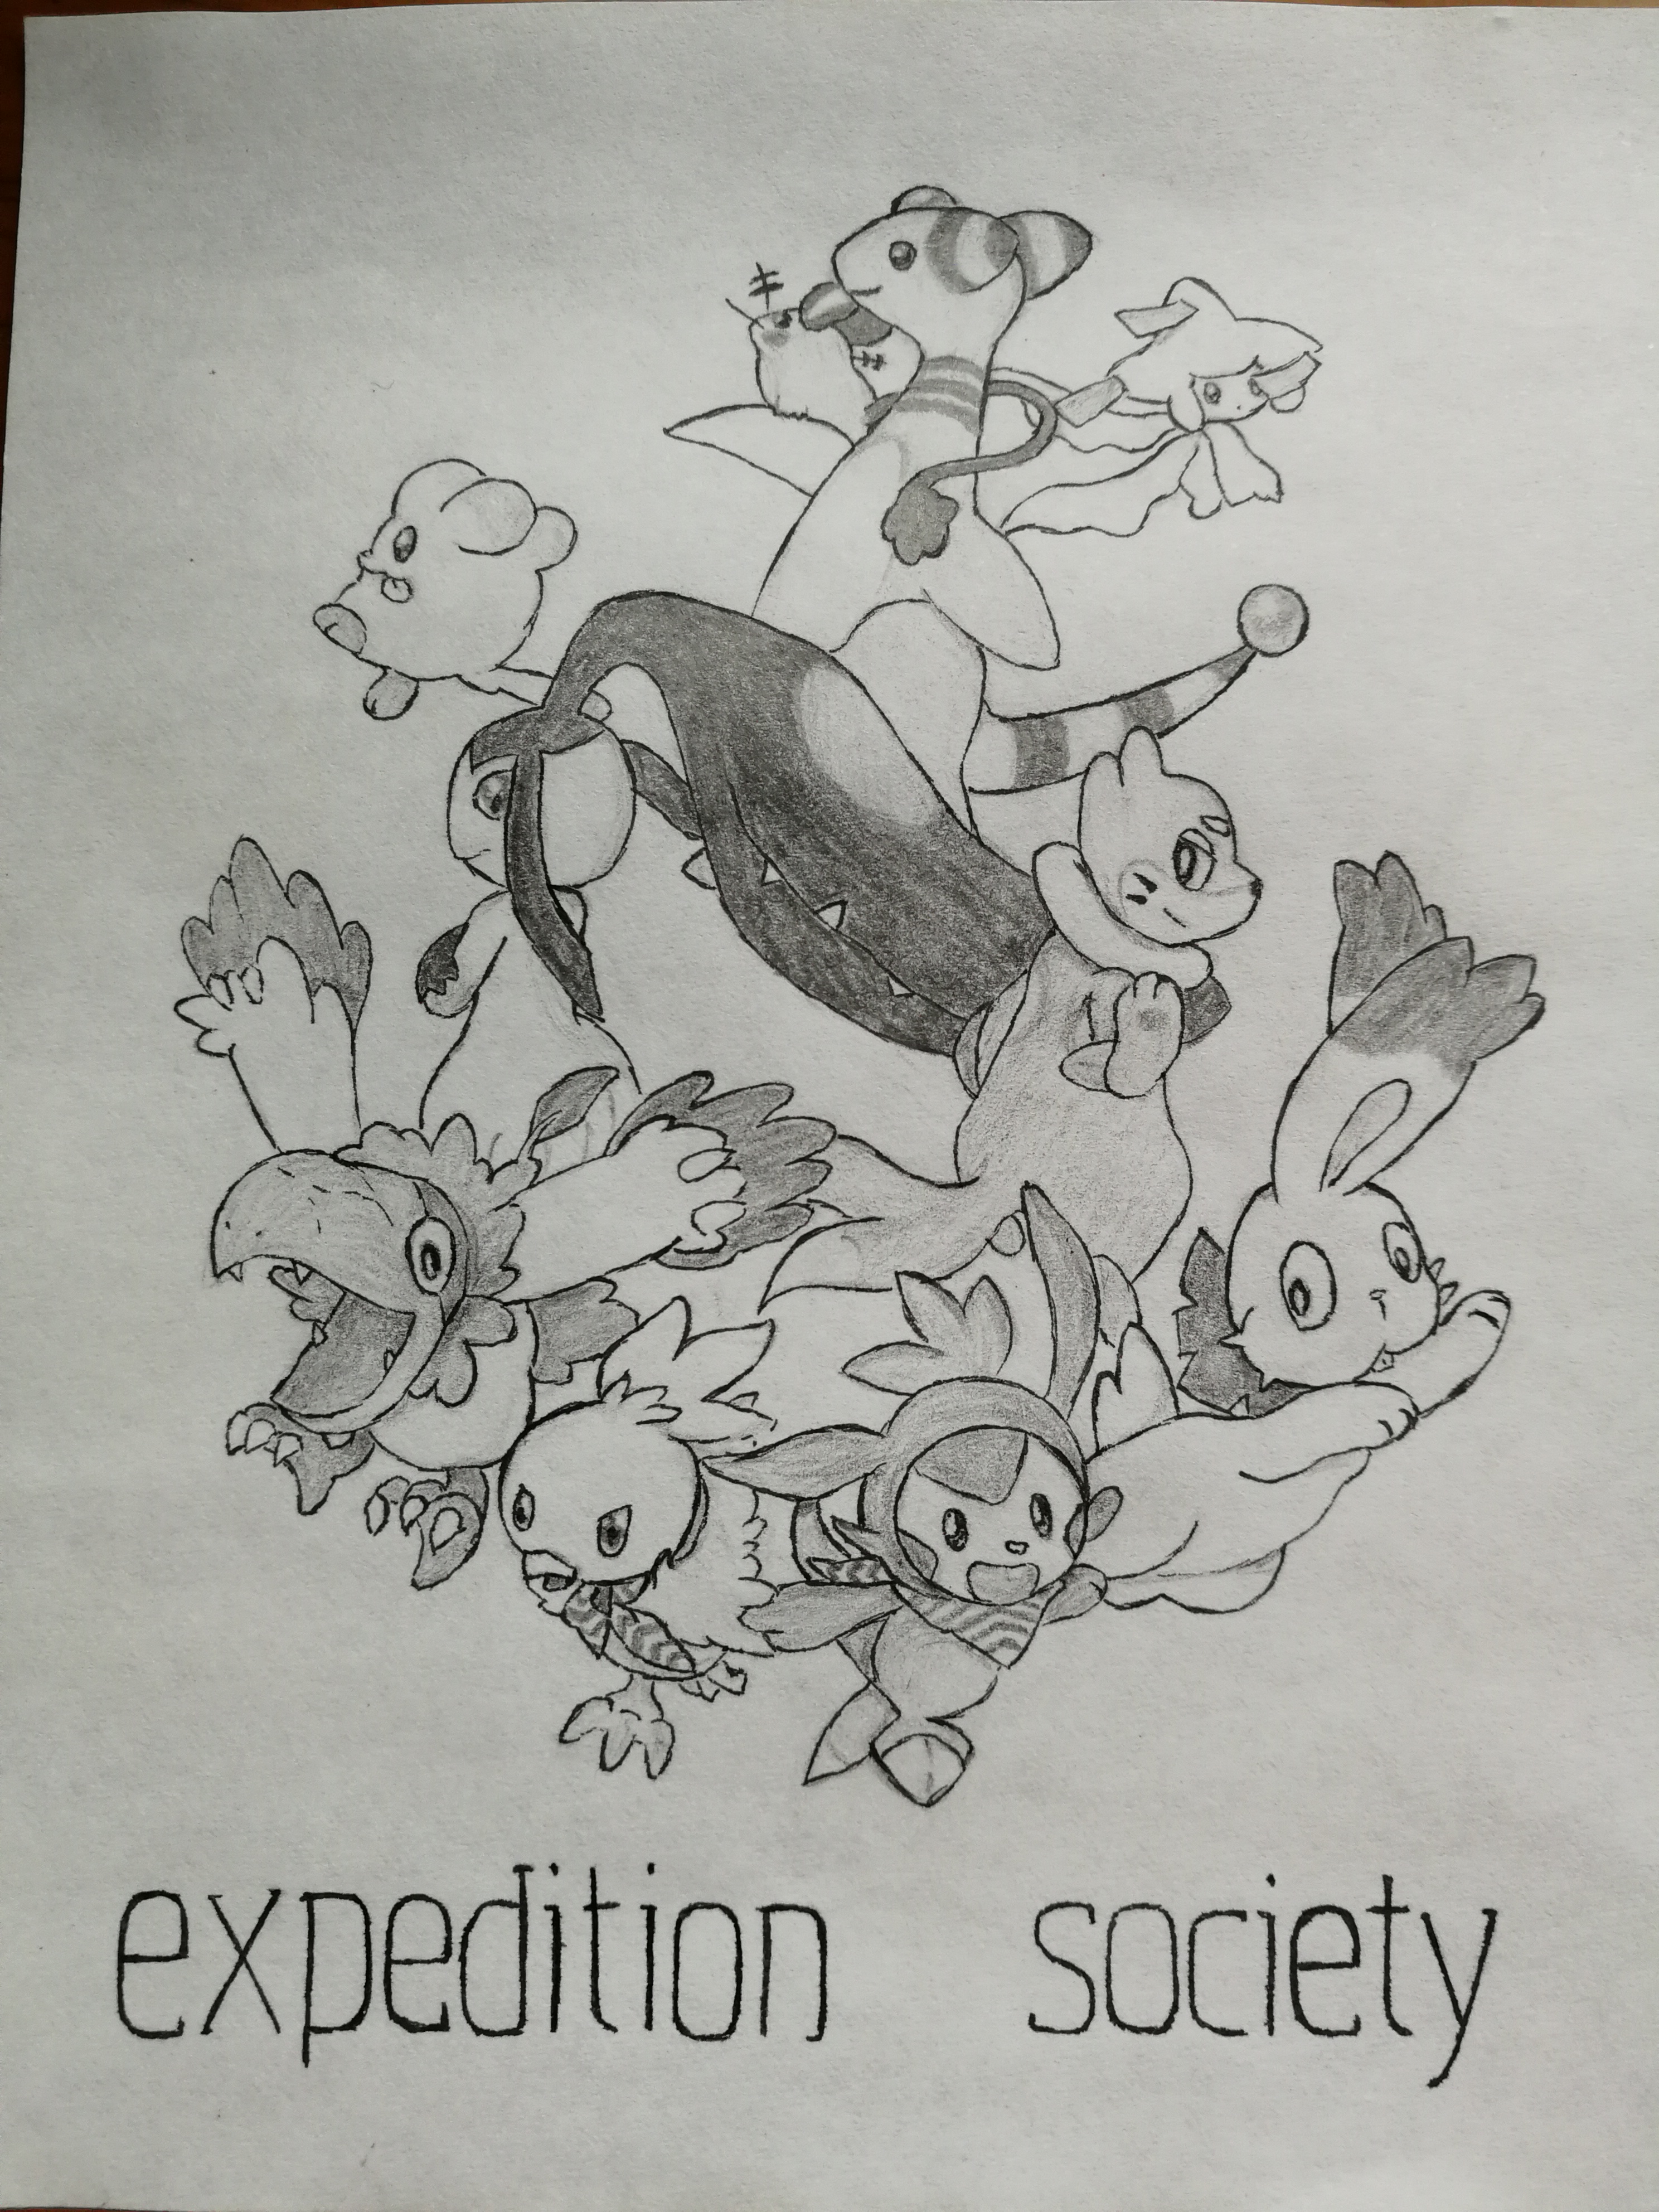 expedition society